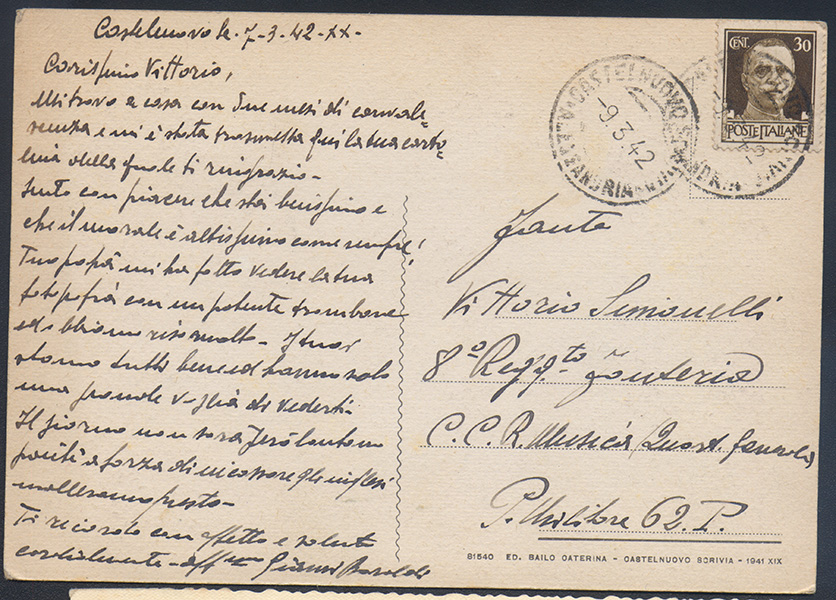 Castelnuovo Sc. 7-3-42-XX-
Carissimo Vittorio,
Mi trovo a casa con due mesi di convale=
scenza e mi è stata trasmessa qui la tua carto=
lina della quale ti ringrazio-
Sento con piacere che stai benissimo e
che il morale è altissimo come sempre!
Tuo papà mi ha fatto vedere la tua
fotografia con un potente trombone
ed abbiamo riso molto- I tuoi
stanno tutti bene ed hanno solo
una grande voglia di vederti-
Il giorno non sarà però lontano
poichè a forza di incassare gli inglesi
molleranno presto-
Ti ricordo con affetto e saluto
cordialmente- aff.mo Gianni
CENT. 30
POSTE ITALIANE
CASTELNUOVO SCRIVIA
ALESSANDRIA
-9.3.42
Fante
Vittorio Simonelli
8° Regg.to Fanteria
C.C.R. Musica (Quart. Generale)
P. Militare 62. P.
81540 ED. BAILO CATERINA - CASTELNUOVO SCRIVIA - 1941 XIX